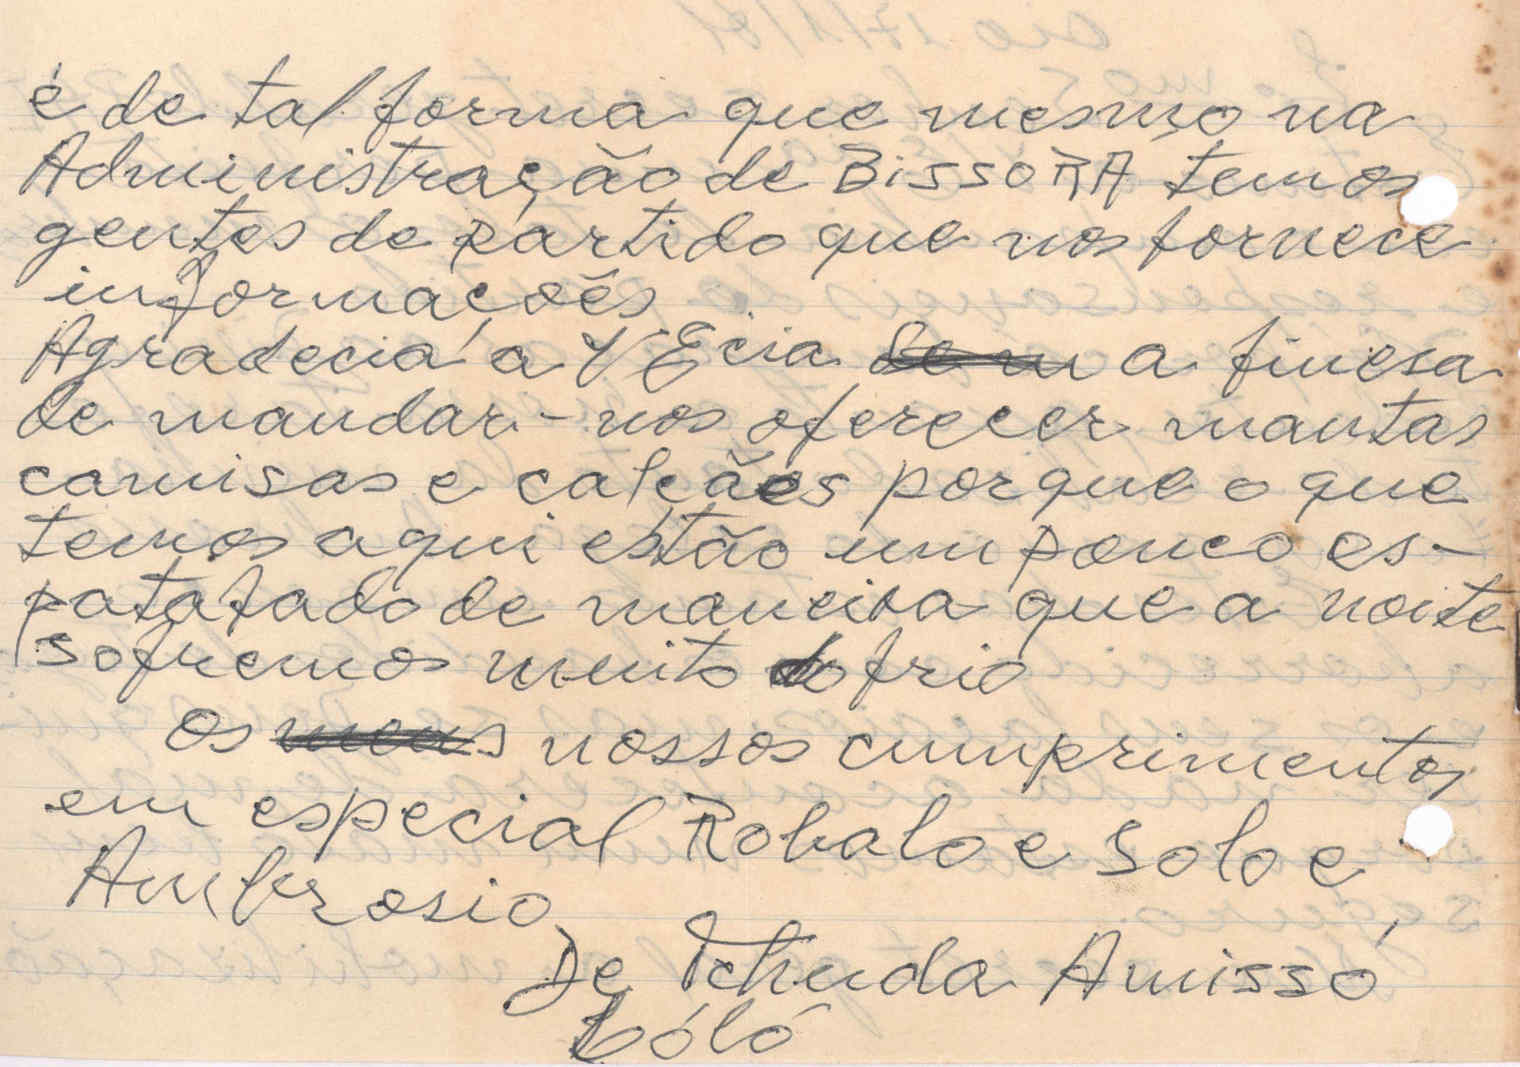 é de tal forma que mesmo na
Administração de BissoRA temos
gentes de partido que nos fornece
informações
Agradecia a V Ecia a finesa
de mandar-nos oferecer mantas
camisas e calcães porque o que
temos aqui estão um pouco es-
patafado de maneira que a noite
sofremos muito frio
Os meus nossos cumprimentos
em especial Robalo e Solo e
Ambrosio
De Tchuda Amissó
Lóló